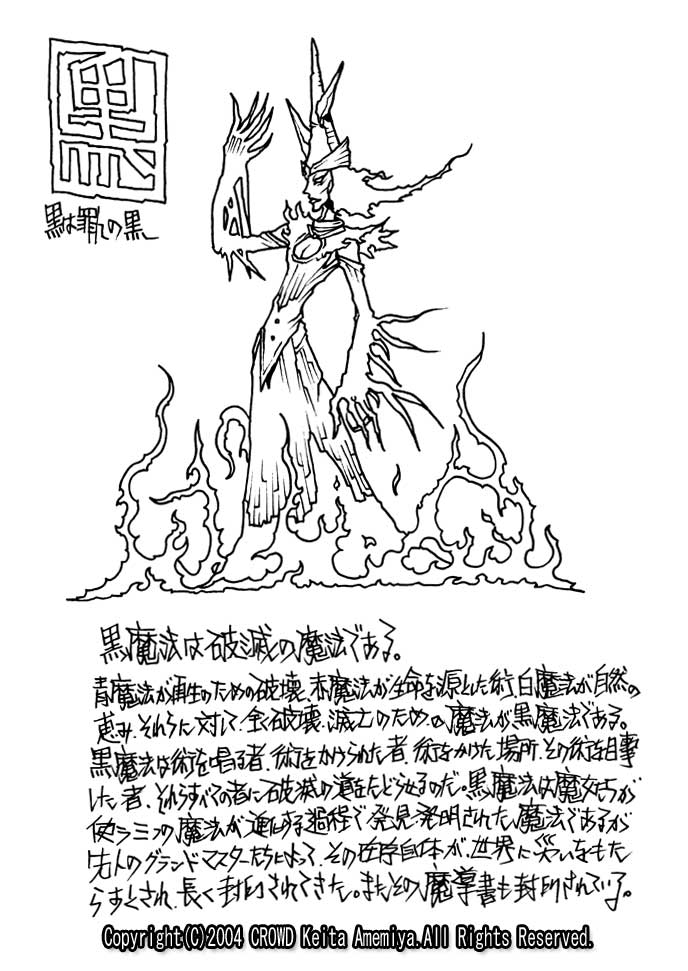 黒
黒は罪の黒
黒魔法は破滅の魔法である。
青魔法が再生のための破壊、赤魔法が生命を源とした術、白魔法が自然の
恵み、それらに対して、全破壊、滅亡のための魔法が黒魔法である。
黒魔法は術を唱る者、術をかけられた者、術をかけた場所、その術を目撃
した者、それらすべての者に破滅の道をたどらせるのだ。黒魔法は魔女たちが
使う三つの魔法が進化する過程で発見発明された魔法であるが
先人のグランドマスターたちによって、その存在自体が、世界に災いをもた
らすとされ、長く封印されてきた。またその魔導書も封印されている。
Copyright(C)2004 CROWD Keita Amemiya.All Rights Reserved.